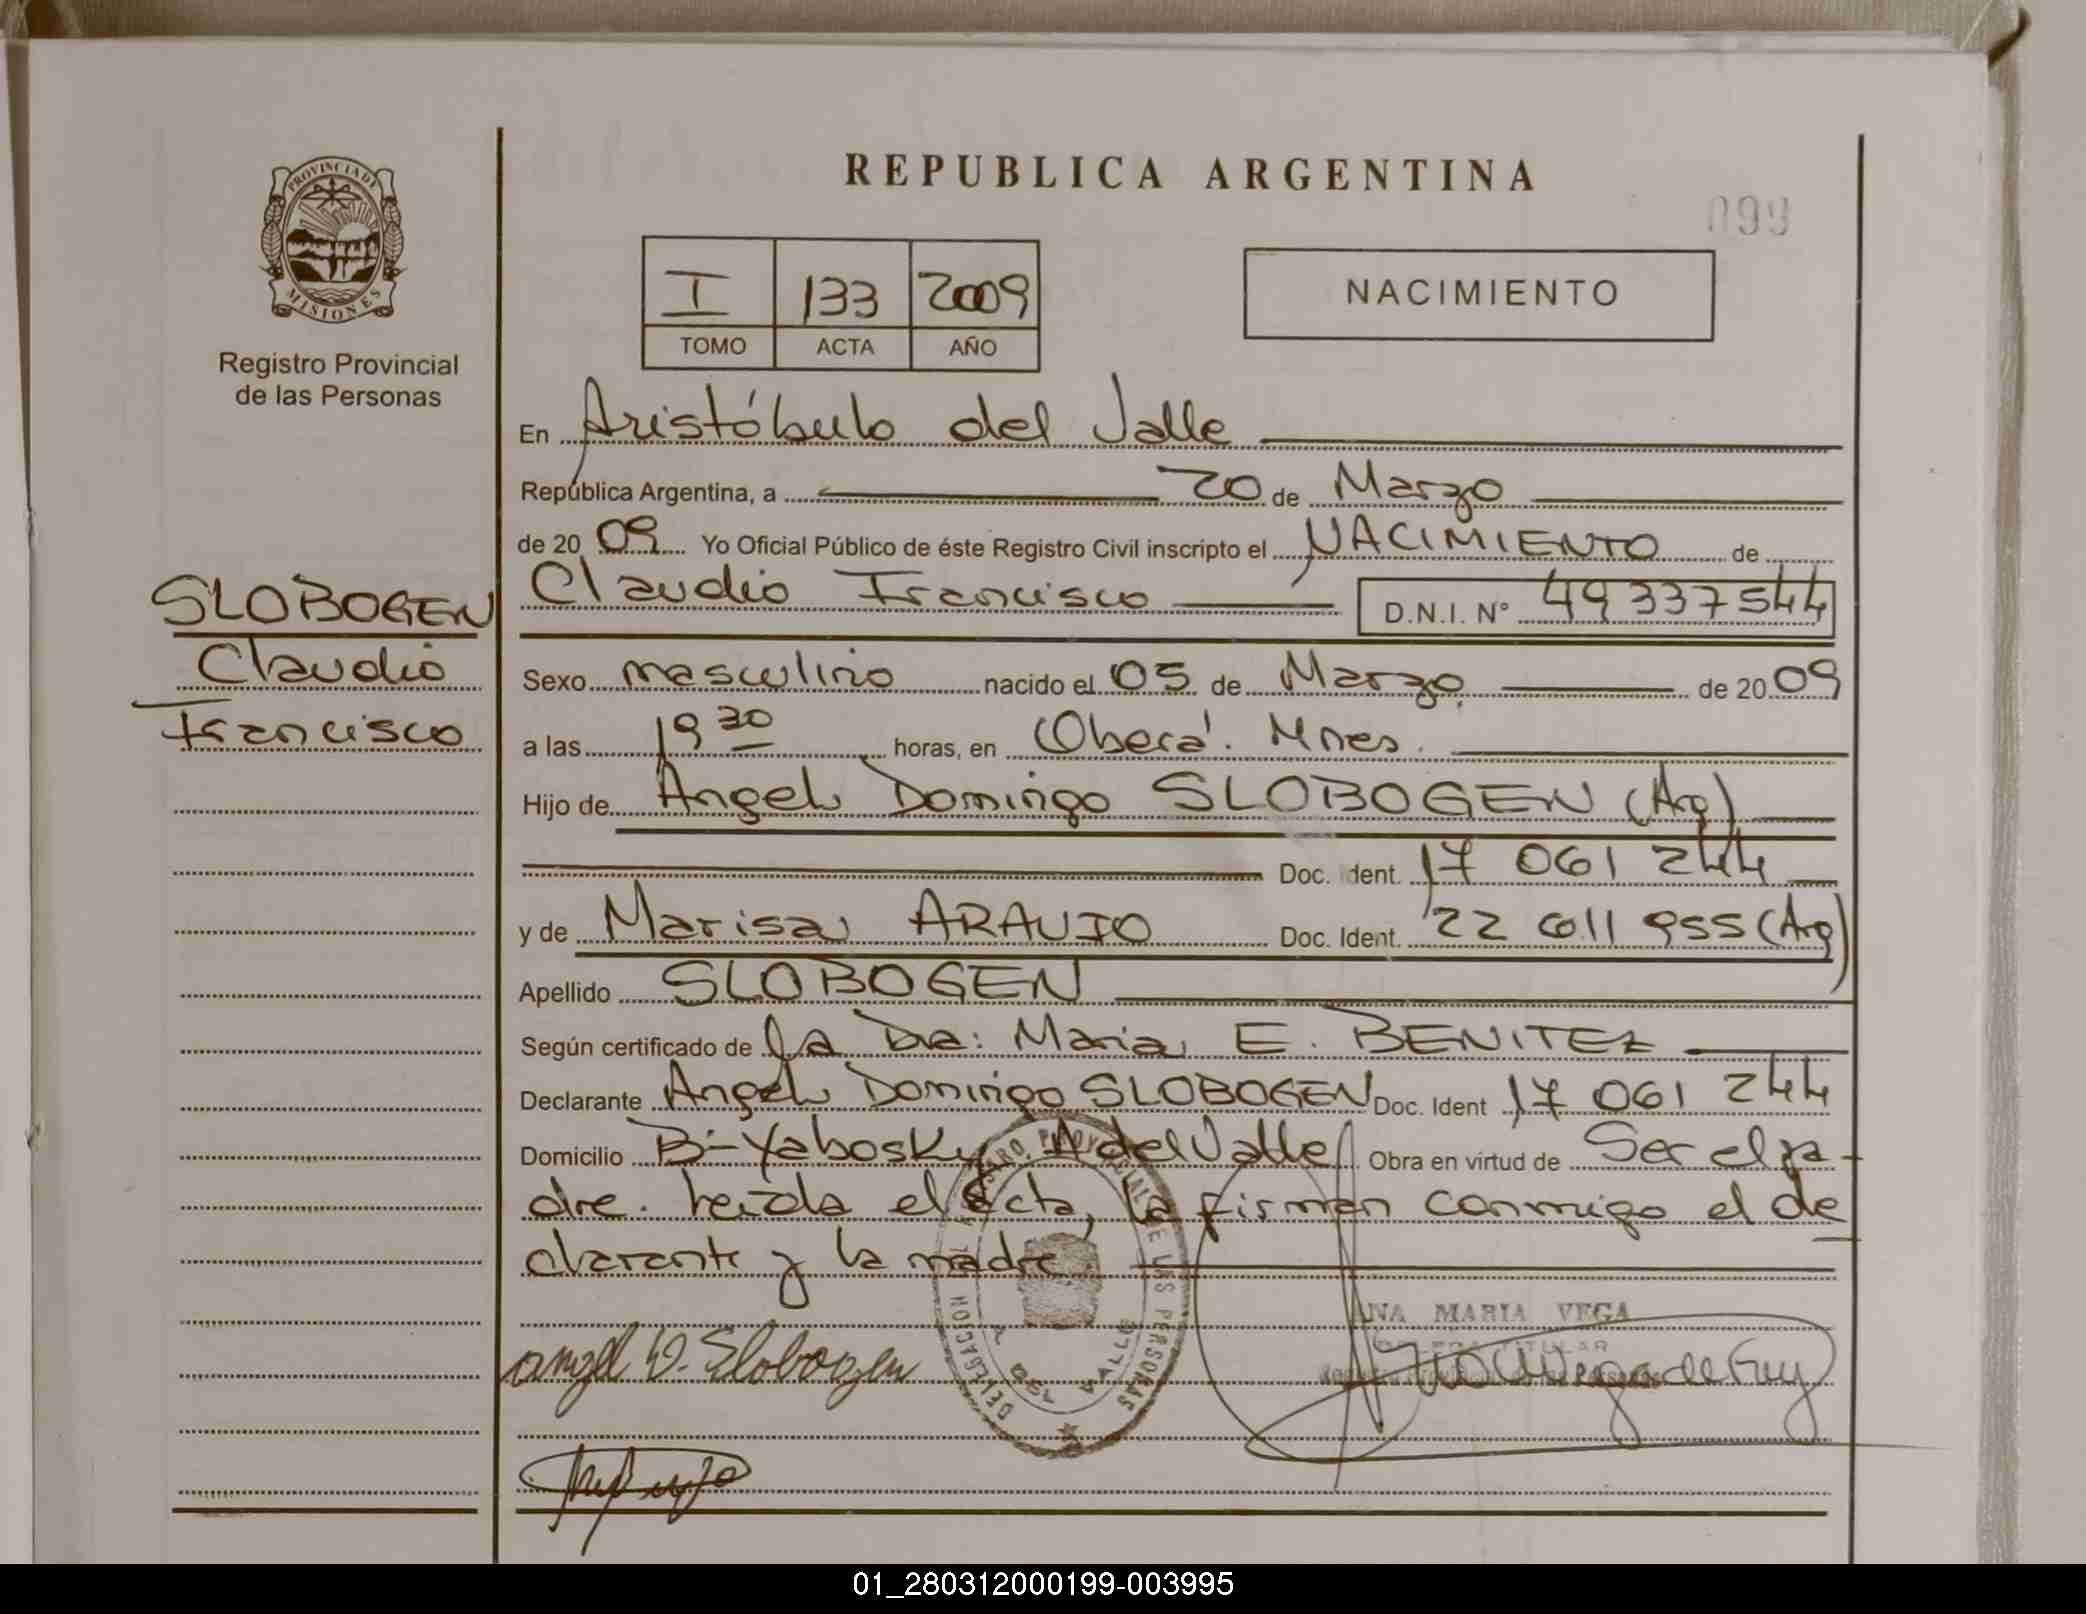 REPUBLICA ARGENTINA
099
PROVINCIA DE
MISIONES
Registro Provincial
de las Personas
I 133 2009
TOMO ACTA AÑO
NACIMIENTO
En Aristóbulo del Valle
República Argentina, a 20 de Marzo
de 20 09 Yo Oficial Público de éste Registro Civil inscripto el NACIMIENTO de
Claudio Francisco D.N.I. Nº 49337544
SLOBOGEN
Claudio
Francisco
Sexo masculino nacido el 05 de Marzo de 20 09
a las 19 30 horas, en Oberá. Mnes.
Hijo de Angel Domingo SLOBOGEN (Arg)
Doc. Ident. 17 061 244
y de Marisa ARAUJO Doc. Ident. 22 611 955 (Arg)
Apellido SLOBOGEN
Según certificado de la Dra: Maria E. BENITEZ
Declarante Angel Domingo SLOBOGEN Doc. Ident 17 061 244
Domicilio Bº Yabosky A del Valle Obra en virtud de Ser el pa-
dre. Leída el acta, la firman conmigo el de
clarante y la madre
REGISTRO PROVINCIAL DE LAS PERSONAS
DELEGACION
A. DEL VALLE
ANA MARIA VEGA
TITULAR
angel D. Slobogen
01_280312000199-003995